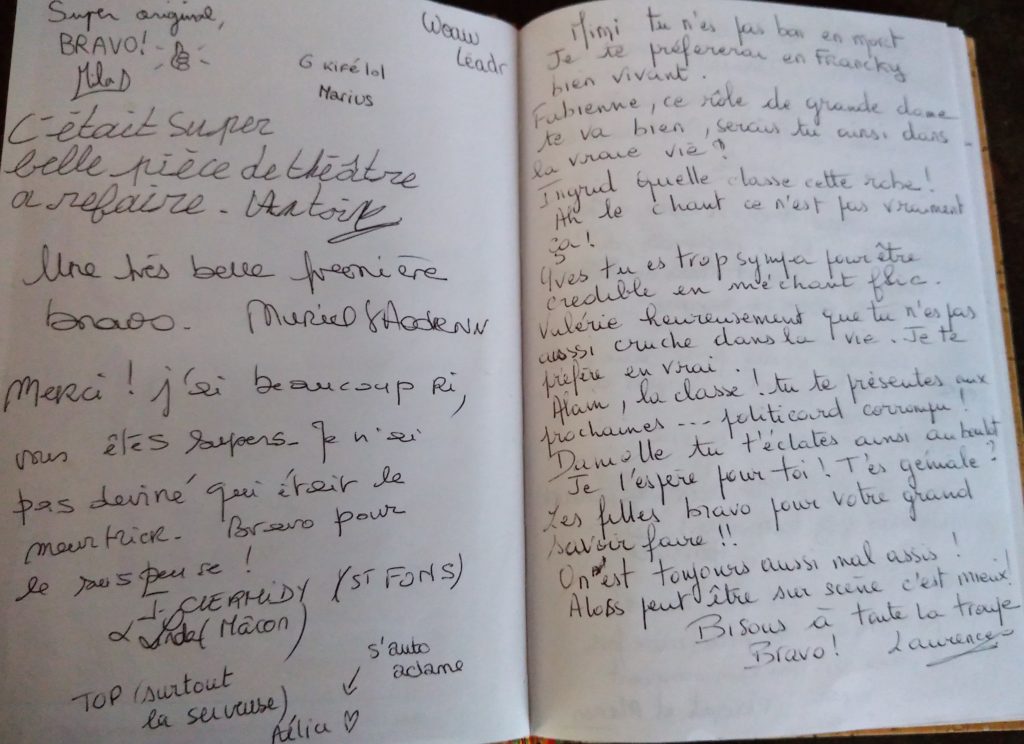 Super original,
BRAVO!
MilaD
Woaw
Léadr
G kifé lol
Marius
C'était super
belle pièce de théâtre
a refaire. Antoine
Une très belle première
bravo. Muriel
Merci ! j'ai beaucoup ri,
vous êtes supers. Je n'ai
pas deviné qui était le
meurtrier. Bravo pour
le suspense !
(ST FONS)
(Mâcon)
TOP (surtout
la serveuse)
Aélia ♡
s'auto
aclame
Mimi tu n'es pas bon en mort
Je te préfererai en Francky
bien vivant.
Fabienne, ce rôle de grande dame
te va bien, serais tu ainsi dans
la vraie vie ?
Ingrid quelle classe cette robe !
Ah le chant ce n'est pas vraiment
ça !
Yves tu es trop sympa pour être
crédible en méchant flic.
Valérie heureusement que tu n'es pas
aussi cruche dans la vie. Je te
préfère en vrai.
Alain, la classe ! tu te présentes aux
prochaines --- politicard corrompu !
tu t'éclates ainsi au boulot ?
Je l'espère pour toi ! T'es géniale
Les filles bravo pour votre grand
savoir faire !!
On est toujours aussi mal assis !
Alors peut être sur scène c'est mieux !
Bisous à toute la troupe
Bravo ! Laurence